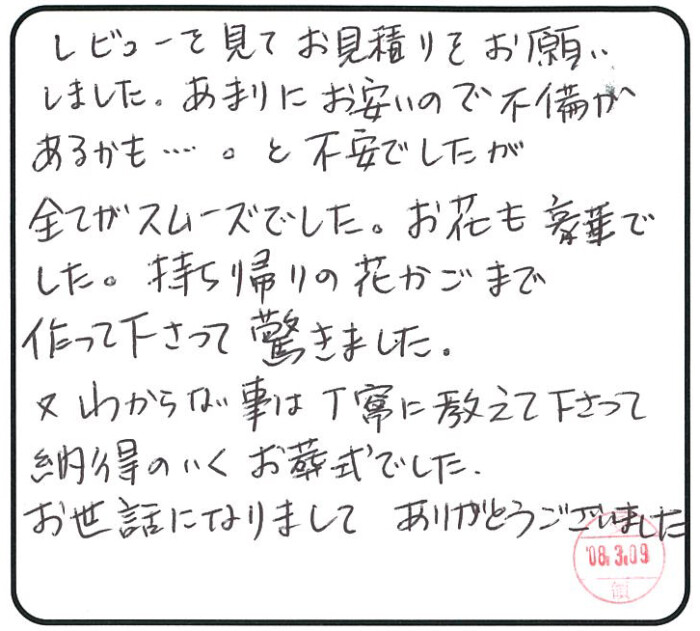 レビューを見てお見積りをお願い
しました。あまりにお安いので不備が
あるかも…。と不安でしたが
全てがスムーズでした。お花も豪華で
した。持ち帰りの花かごまで
作って下さって驚きました。
又わからない事は丁寧に教えて下さって
納得のいくお葬式でした.
お世話になりまして ありがとうございました
'08.3.09